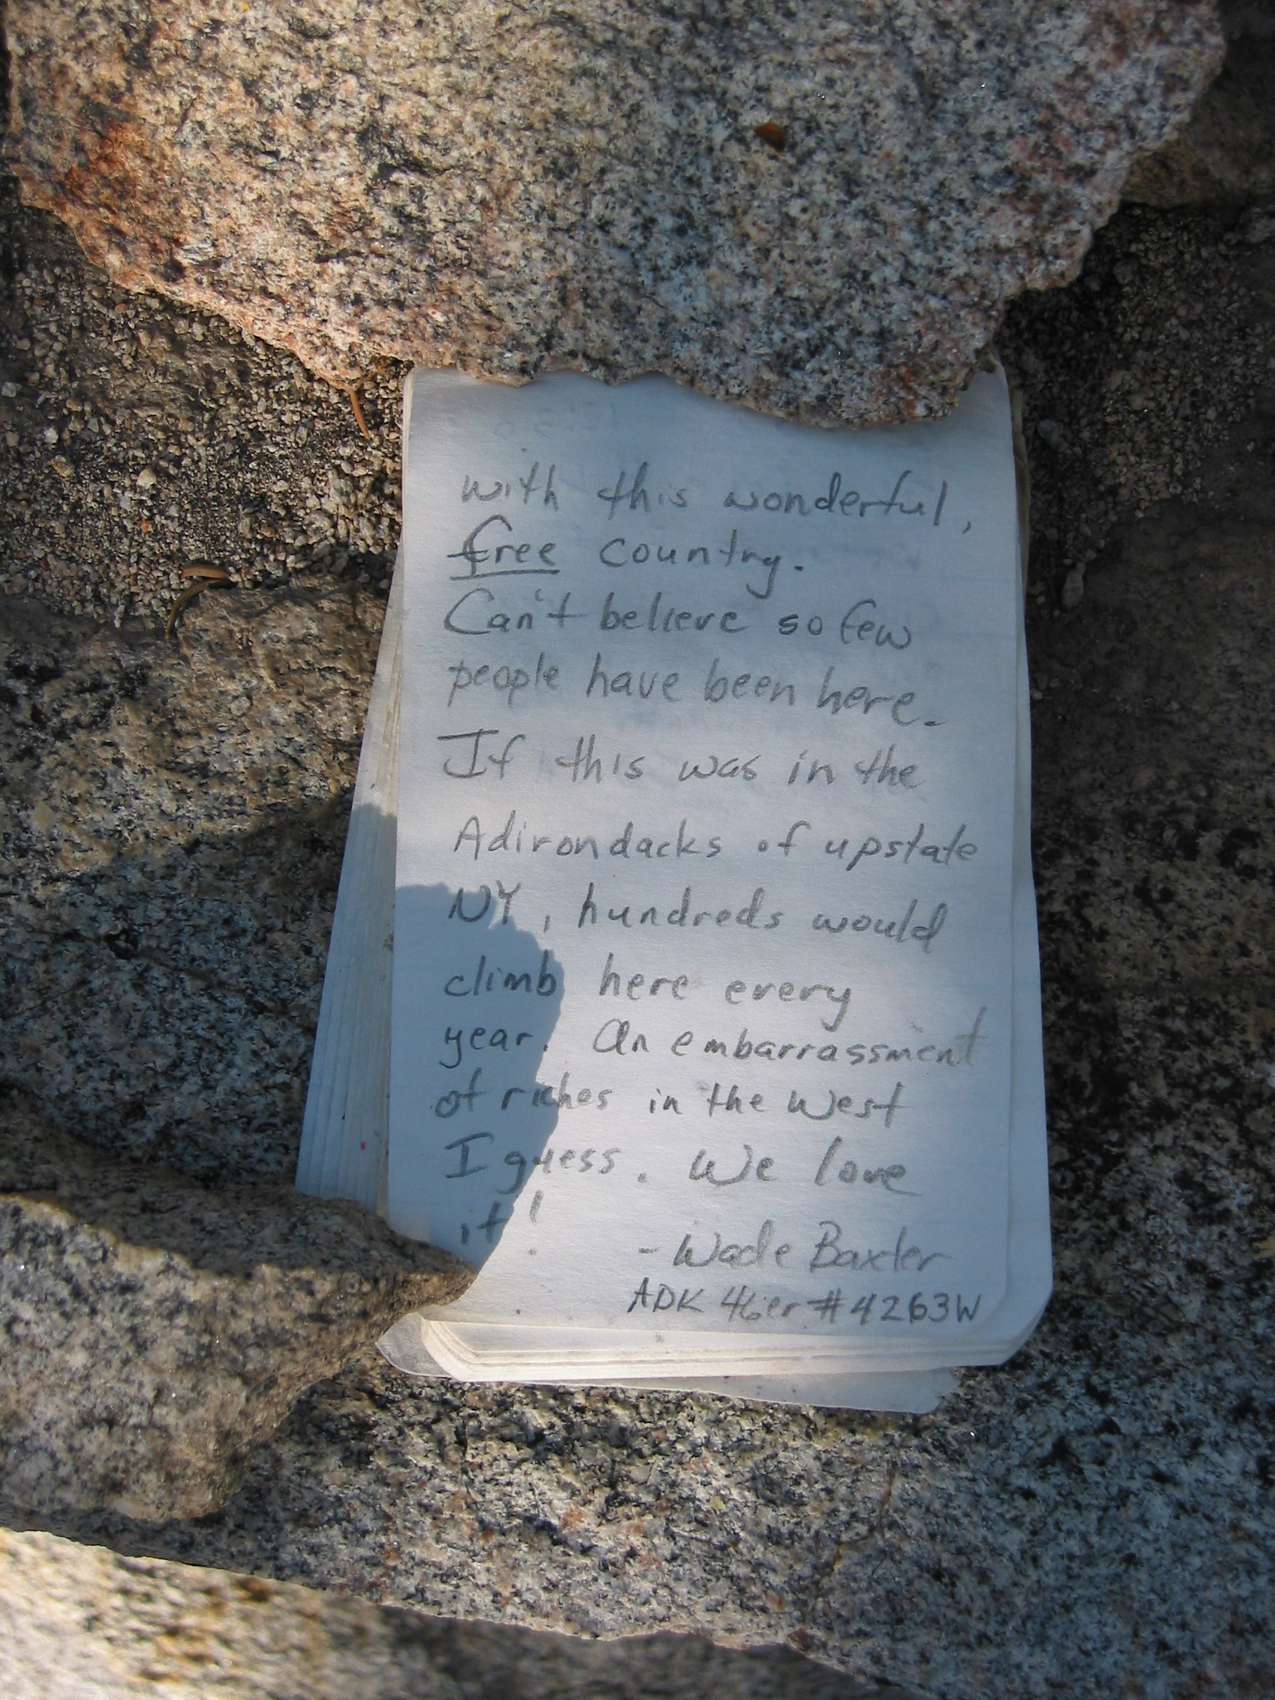 with this wonderful,
free country.
Can't believe so few
people have been here.
If this was in the
Adirondacks of upstate
NY, hundreds would
climb here every
year. An embarrassment
of riches in the West
I guess. We love
it!
- Wade Baxter
ADK 46er #4263W